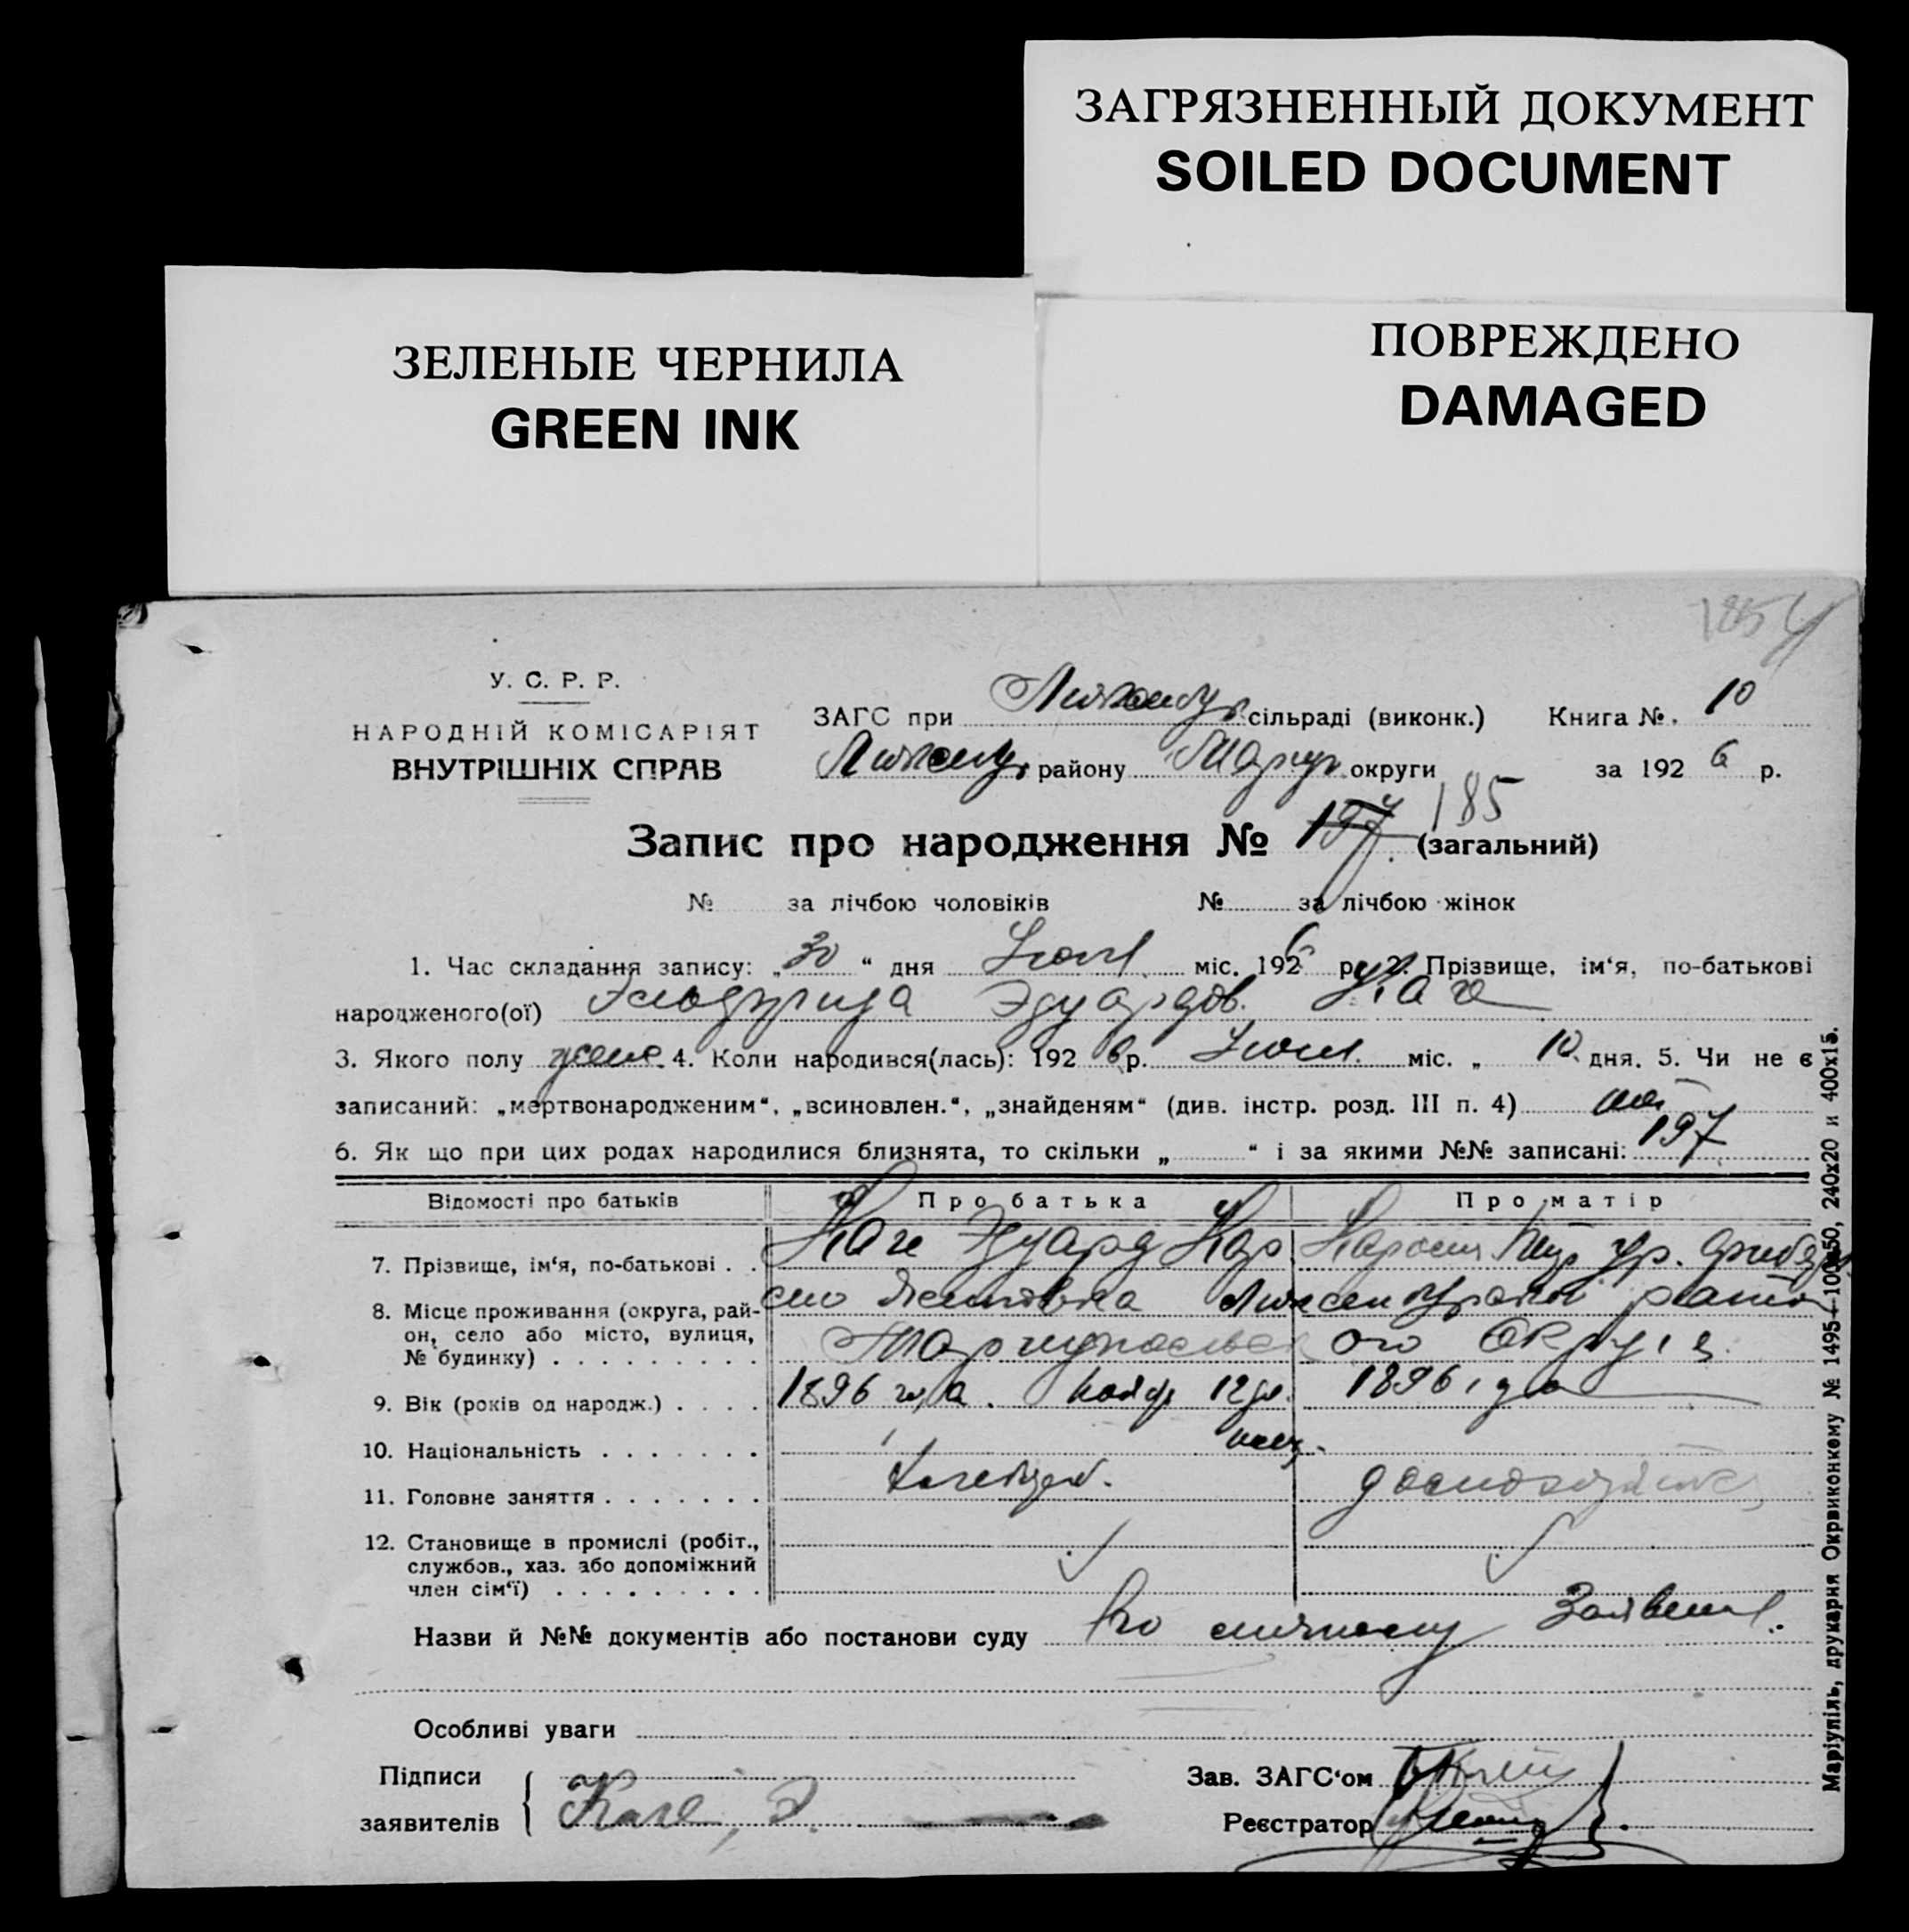 ЗАГРЯЗНЕННЫЙ ДОКУМЕНТ
SOILED DOCUMENT
ЗЕЛЕНЫЕ ЧЕРНИЛА
GREEN INK
ПОВРЕЖДЕНО
DAMAGED
У. С. Р. Р.
НАРОДНІЙ КОМІСАРІЯТ
ВНУТРІШНІХ СПРАВ
ЗАГС при сільраді (виконк.) Книга №. 10
району округи за 192 6 р.
185
Запис про народження № 197 (загальний)
№ за лічбою чоловіків № за лічбою жінок
1. Час складання запису: „ 30 “ дня міс. 192 6 р. 2. Прізвище, ім‘я, по-батькові
народженого(ої) Эльфрида Эдуардов. Каге
3. Якого полу женс. 4. Коли народився(лась): 192 6 р. міс. „ 10 дня. 5. Чи не є
записаний: „мертвонародженим“, „всиновлен.“, „знайденям“ (див. інстр. розд. III п. 4)
6. Як що при цих родах народилися близнята, то скільки „ “ і за якими №№ записані: 197
Відомості про батьків Про батька Про матір
7. Прізвище, ім‘я, по-батькові . . Каге Эдуард Кар
8. Місце проживання (округа, рай-
он, село або місто, вулиця,
№ будинку) . . . . . . . . . Мариупольск ого Округа
9. Вік (років од народж.) . . . . 1896 года. 1896 года
10. Національність . . . . . . . нем.
11. Головне заняття . . . . . . . Хлебороб. домохозяйка
12. Становище в промислі (робіт.,
службов., хаз. або допоміжний
член сім‘ї) . . . . . . . . .
Назви й №№ документів або постанови суду По личному Заявлению.
Особливі уваги
Підписи
заявителів Kage, E.
Зав. ЗАГС‘ом
Реєстратор
Маріупіль, друкарня Окрвиконкому № 1495—100х50, 240х20 и 400х15.